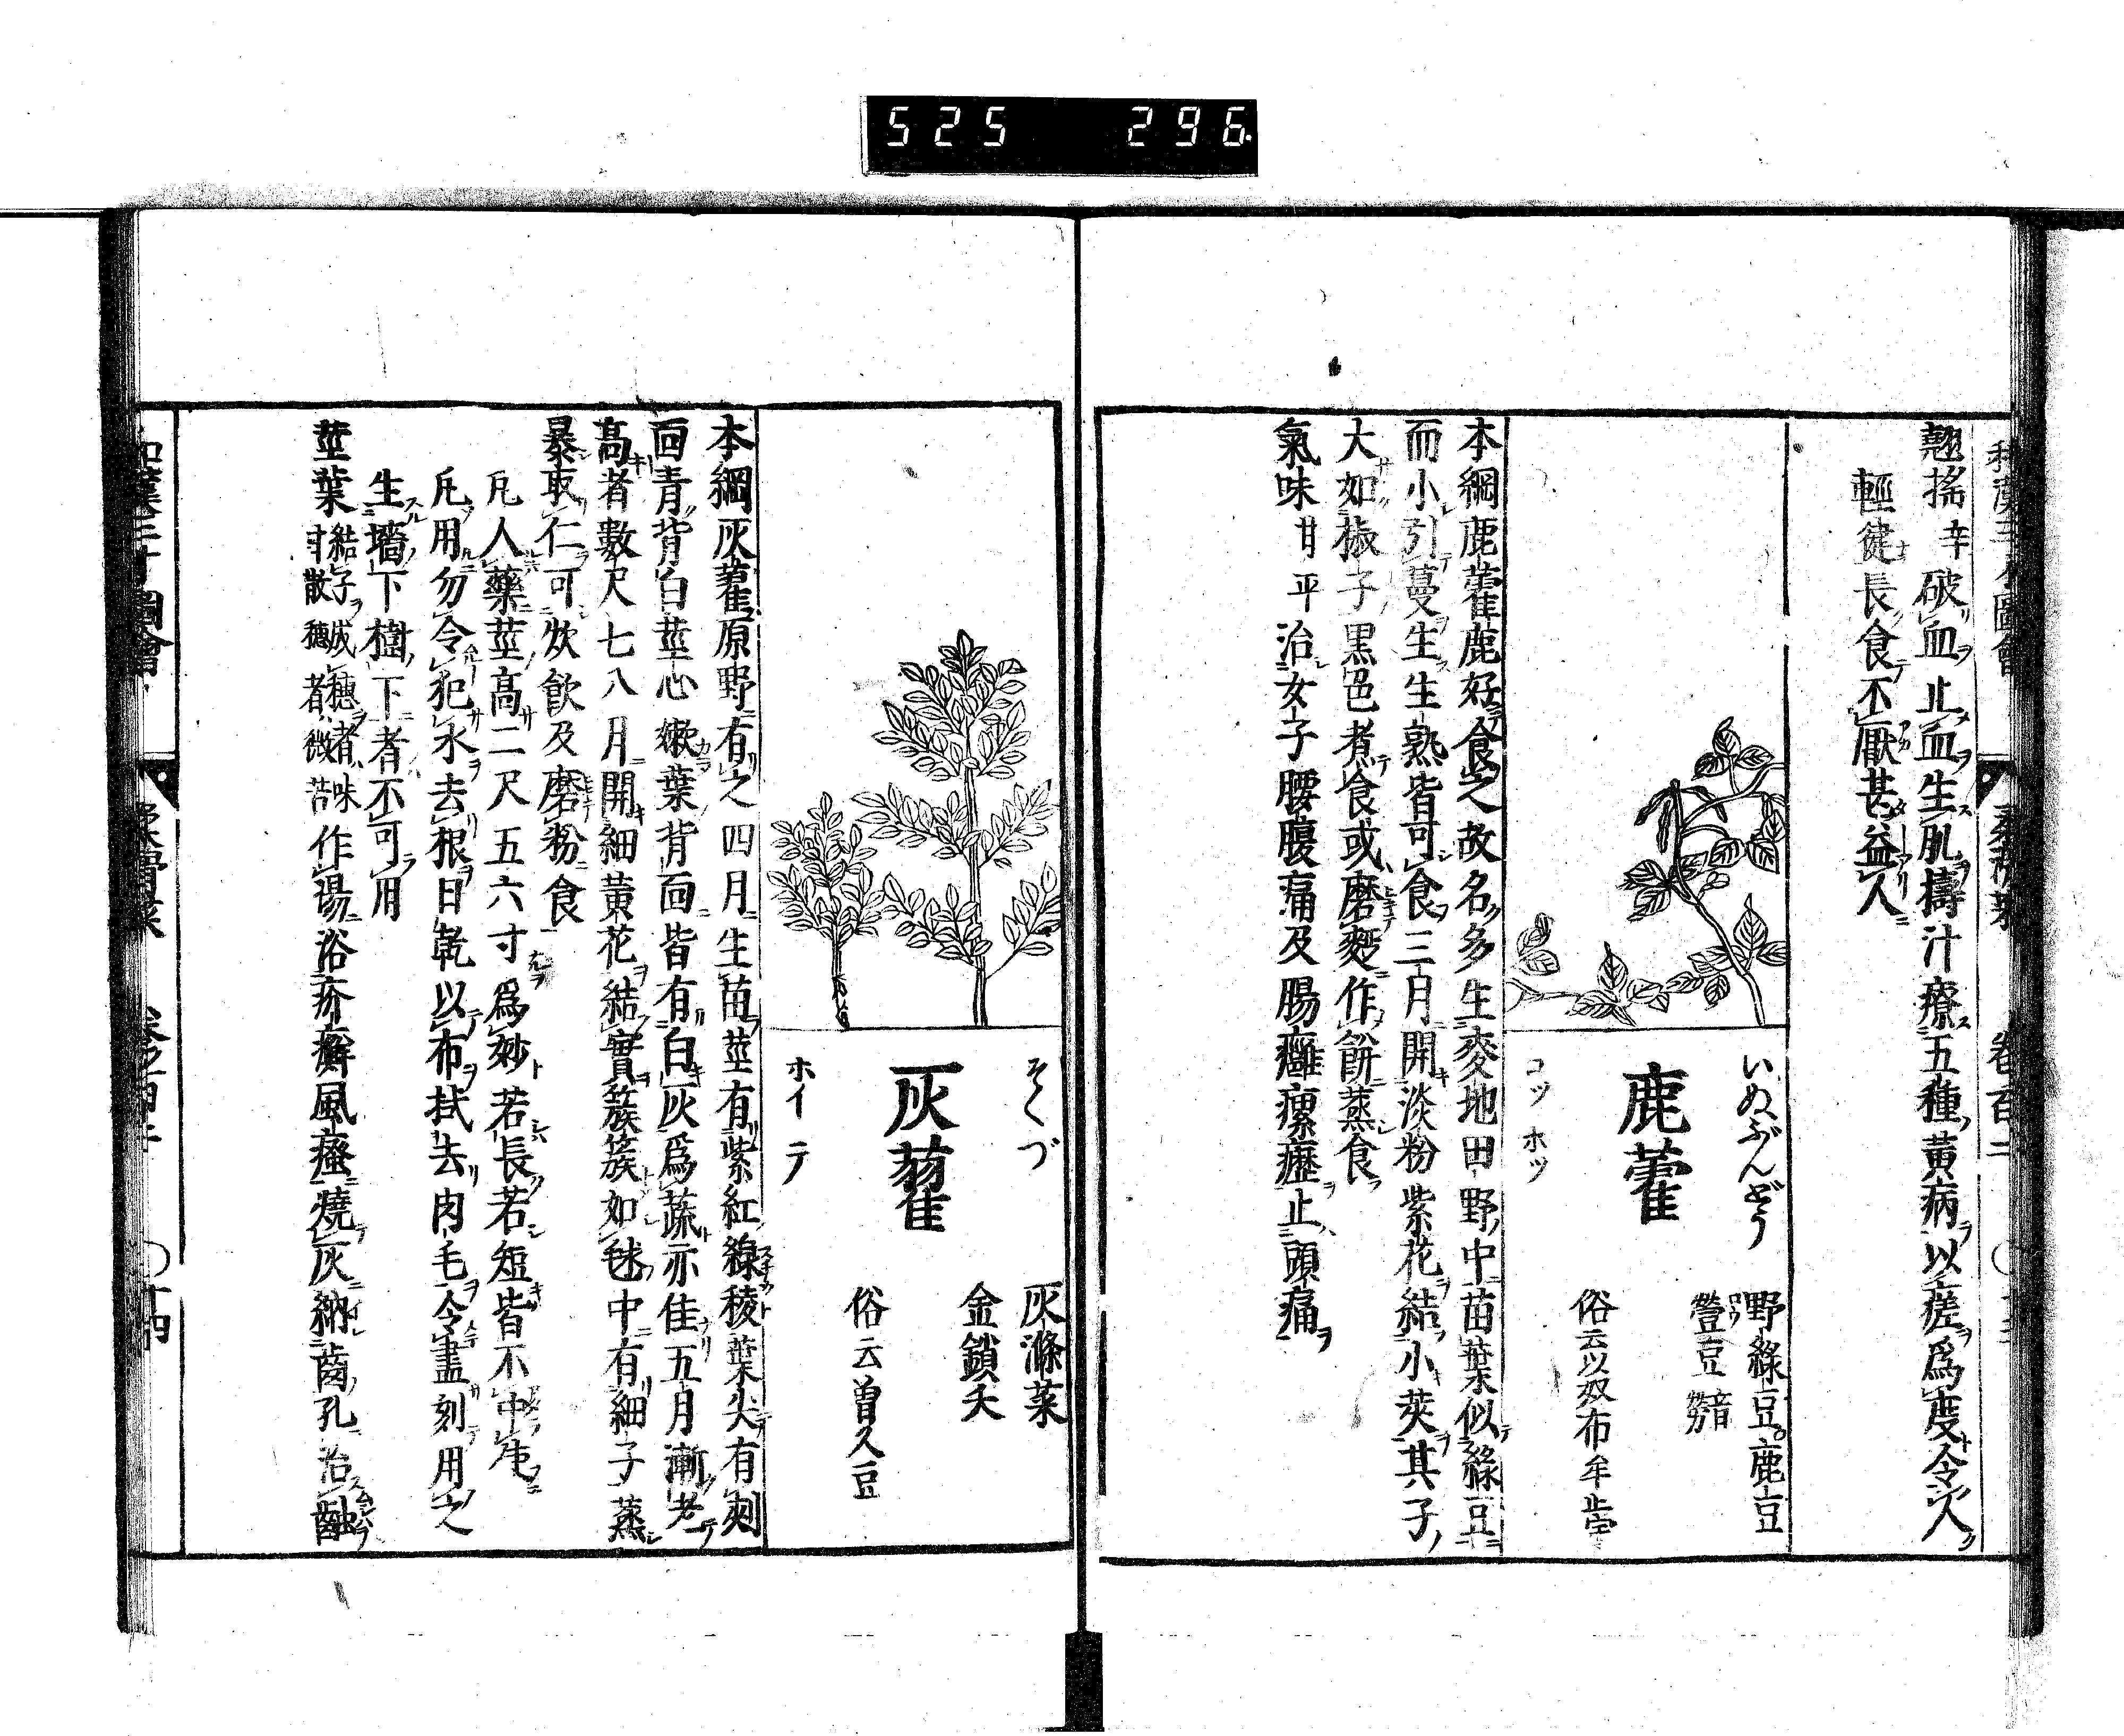 525 296
翹搖 辛 破血止血生肌擣汁療五種黃病以瘥爲度令人
輕健長食不厭甚益人
いぬぶんどう
鹿藿
コツ ホツ
野綠豆 鹿豆
䝁豆 音勞
俗云以奴布牟止宇
本綱鹿藿鹿好食之故名多生麥地田野中苗葉似綠豆
而小引蔓生生熟皆可食三月開淡粉紫花結小莢其子
大如椒子黑色煮食或磨麪作餅蒸食
氣味 甘平 治女子腰腹痛及腸癰瘰癧止頭痛
そくづ
灰藋
ホイ テ
灰滌菜
金鎖夭
俗云曽久豆
本綱灰藋原野有之四月生苗莖有紫紅線稜葉尖有刻
面青背白莖心嫩葉背面皆有白灰爲蔬亦佳五月漸老
高者數尺七八月開細黃花結實簇簇如毬中有細子蒸
暴取仁可炊飮及磨粉食
凡人藥莖高二尺五六寸爲妙若長若短皆不中使
凡用勿令犯水去根日乾以布拭去肉毛令盡剉用之
生墻下樹下者不可用
莖葉 結子成穗者味甘散穗者微苦 作湯浴疥癬風瘙燒灰納齒孔治䘌
和漢三才圖會 柔滑菜 卷百二